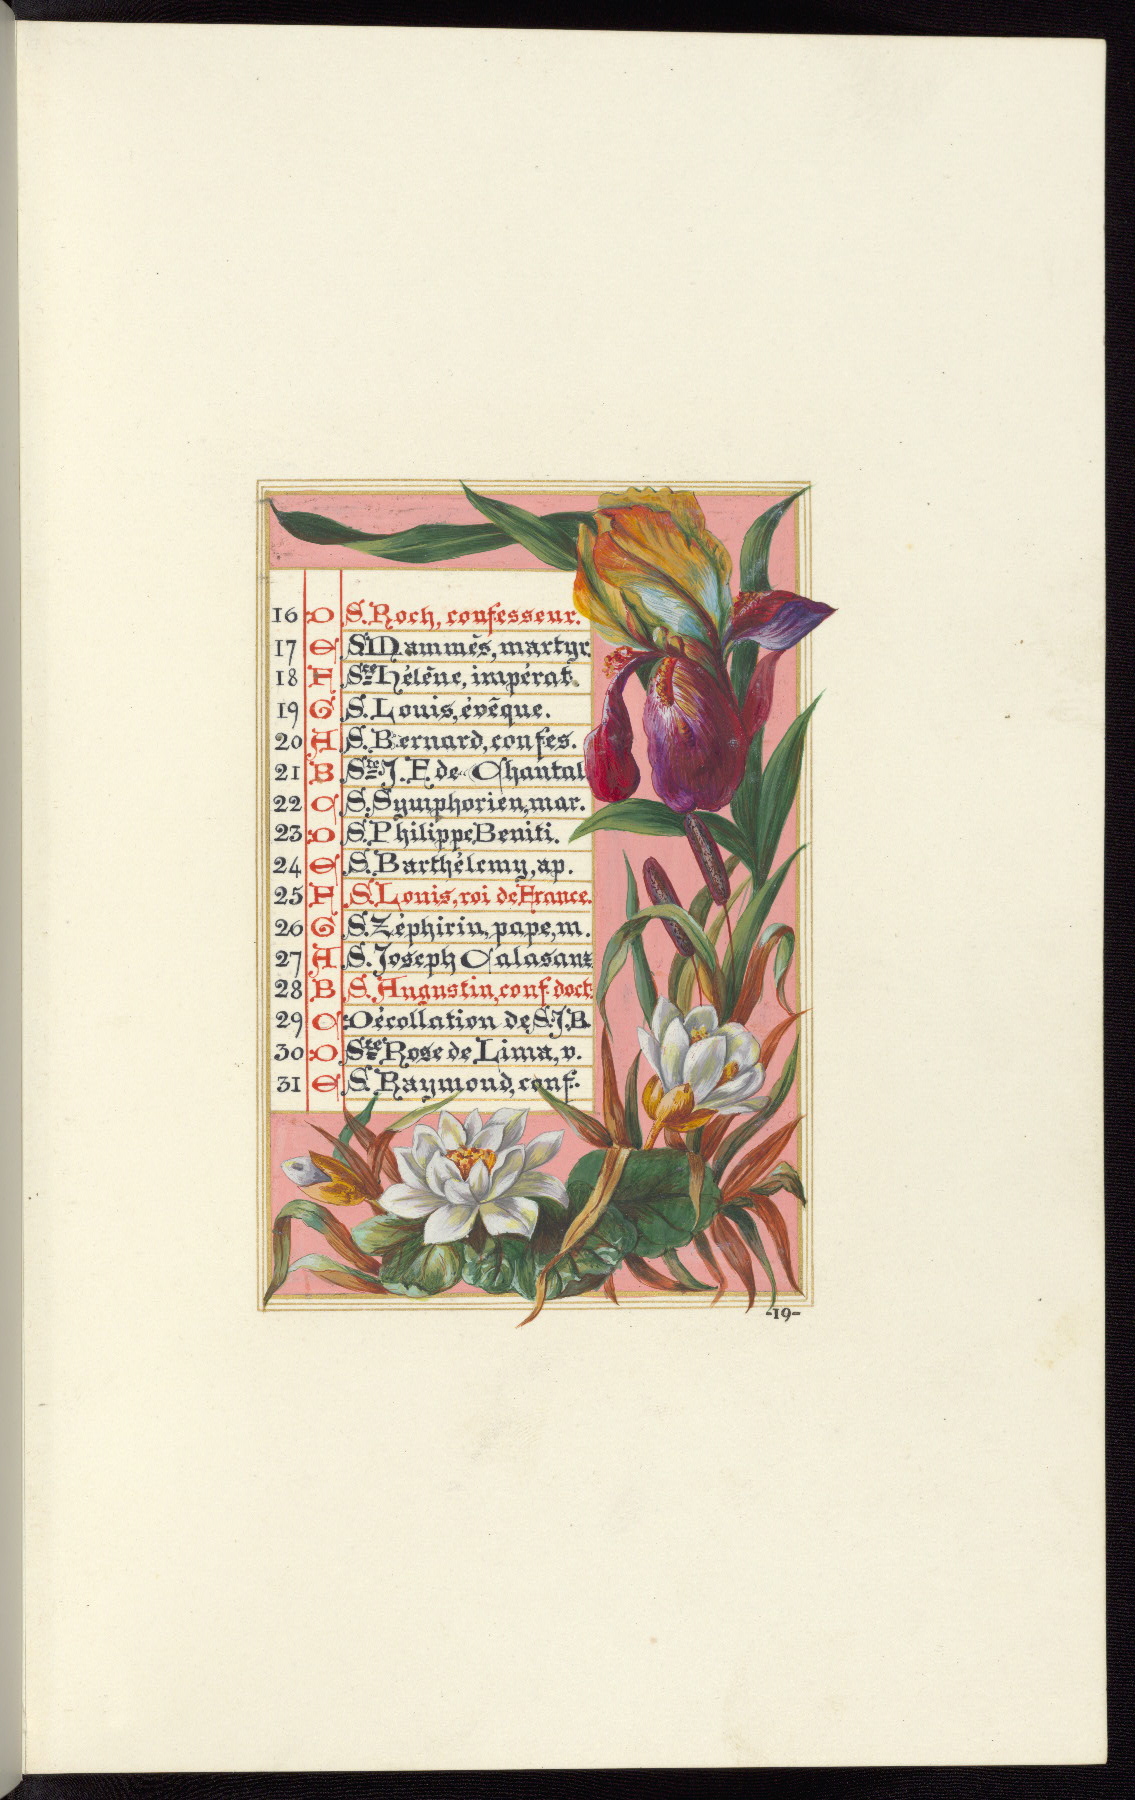 16 D S. Roch, confesseur.
17 E S. Mammès, martyr.
18 F Ste Hélène, impérat.
19 G S. Louis, évêque.
20 A S. Bernard, confes.
21 B Ste J. F. de Chantal
22 C S. Symphorien, mar.
23 D S. Philippe Beniti.
24 E S. Barthélemy, ap.
25 F S. Louis, roi de France.
26 G S. Zéphirin, pape, m.
27 A S. Joseph Calasanz
28 B S. Augustin, conf. doct.
29 C Décollation de S. J. B.
30 D Ste Rose de Lima, v.
31 E S. Raymond, conf.
-19-